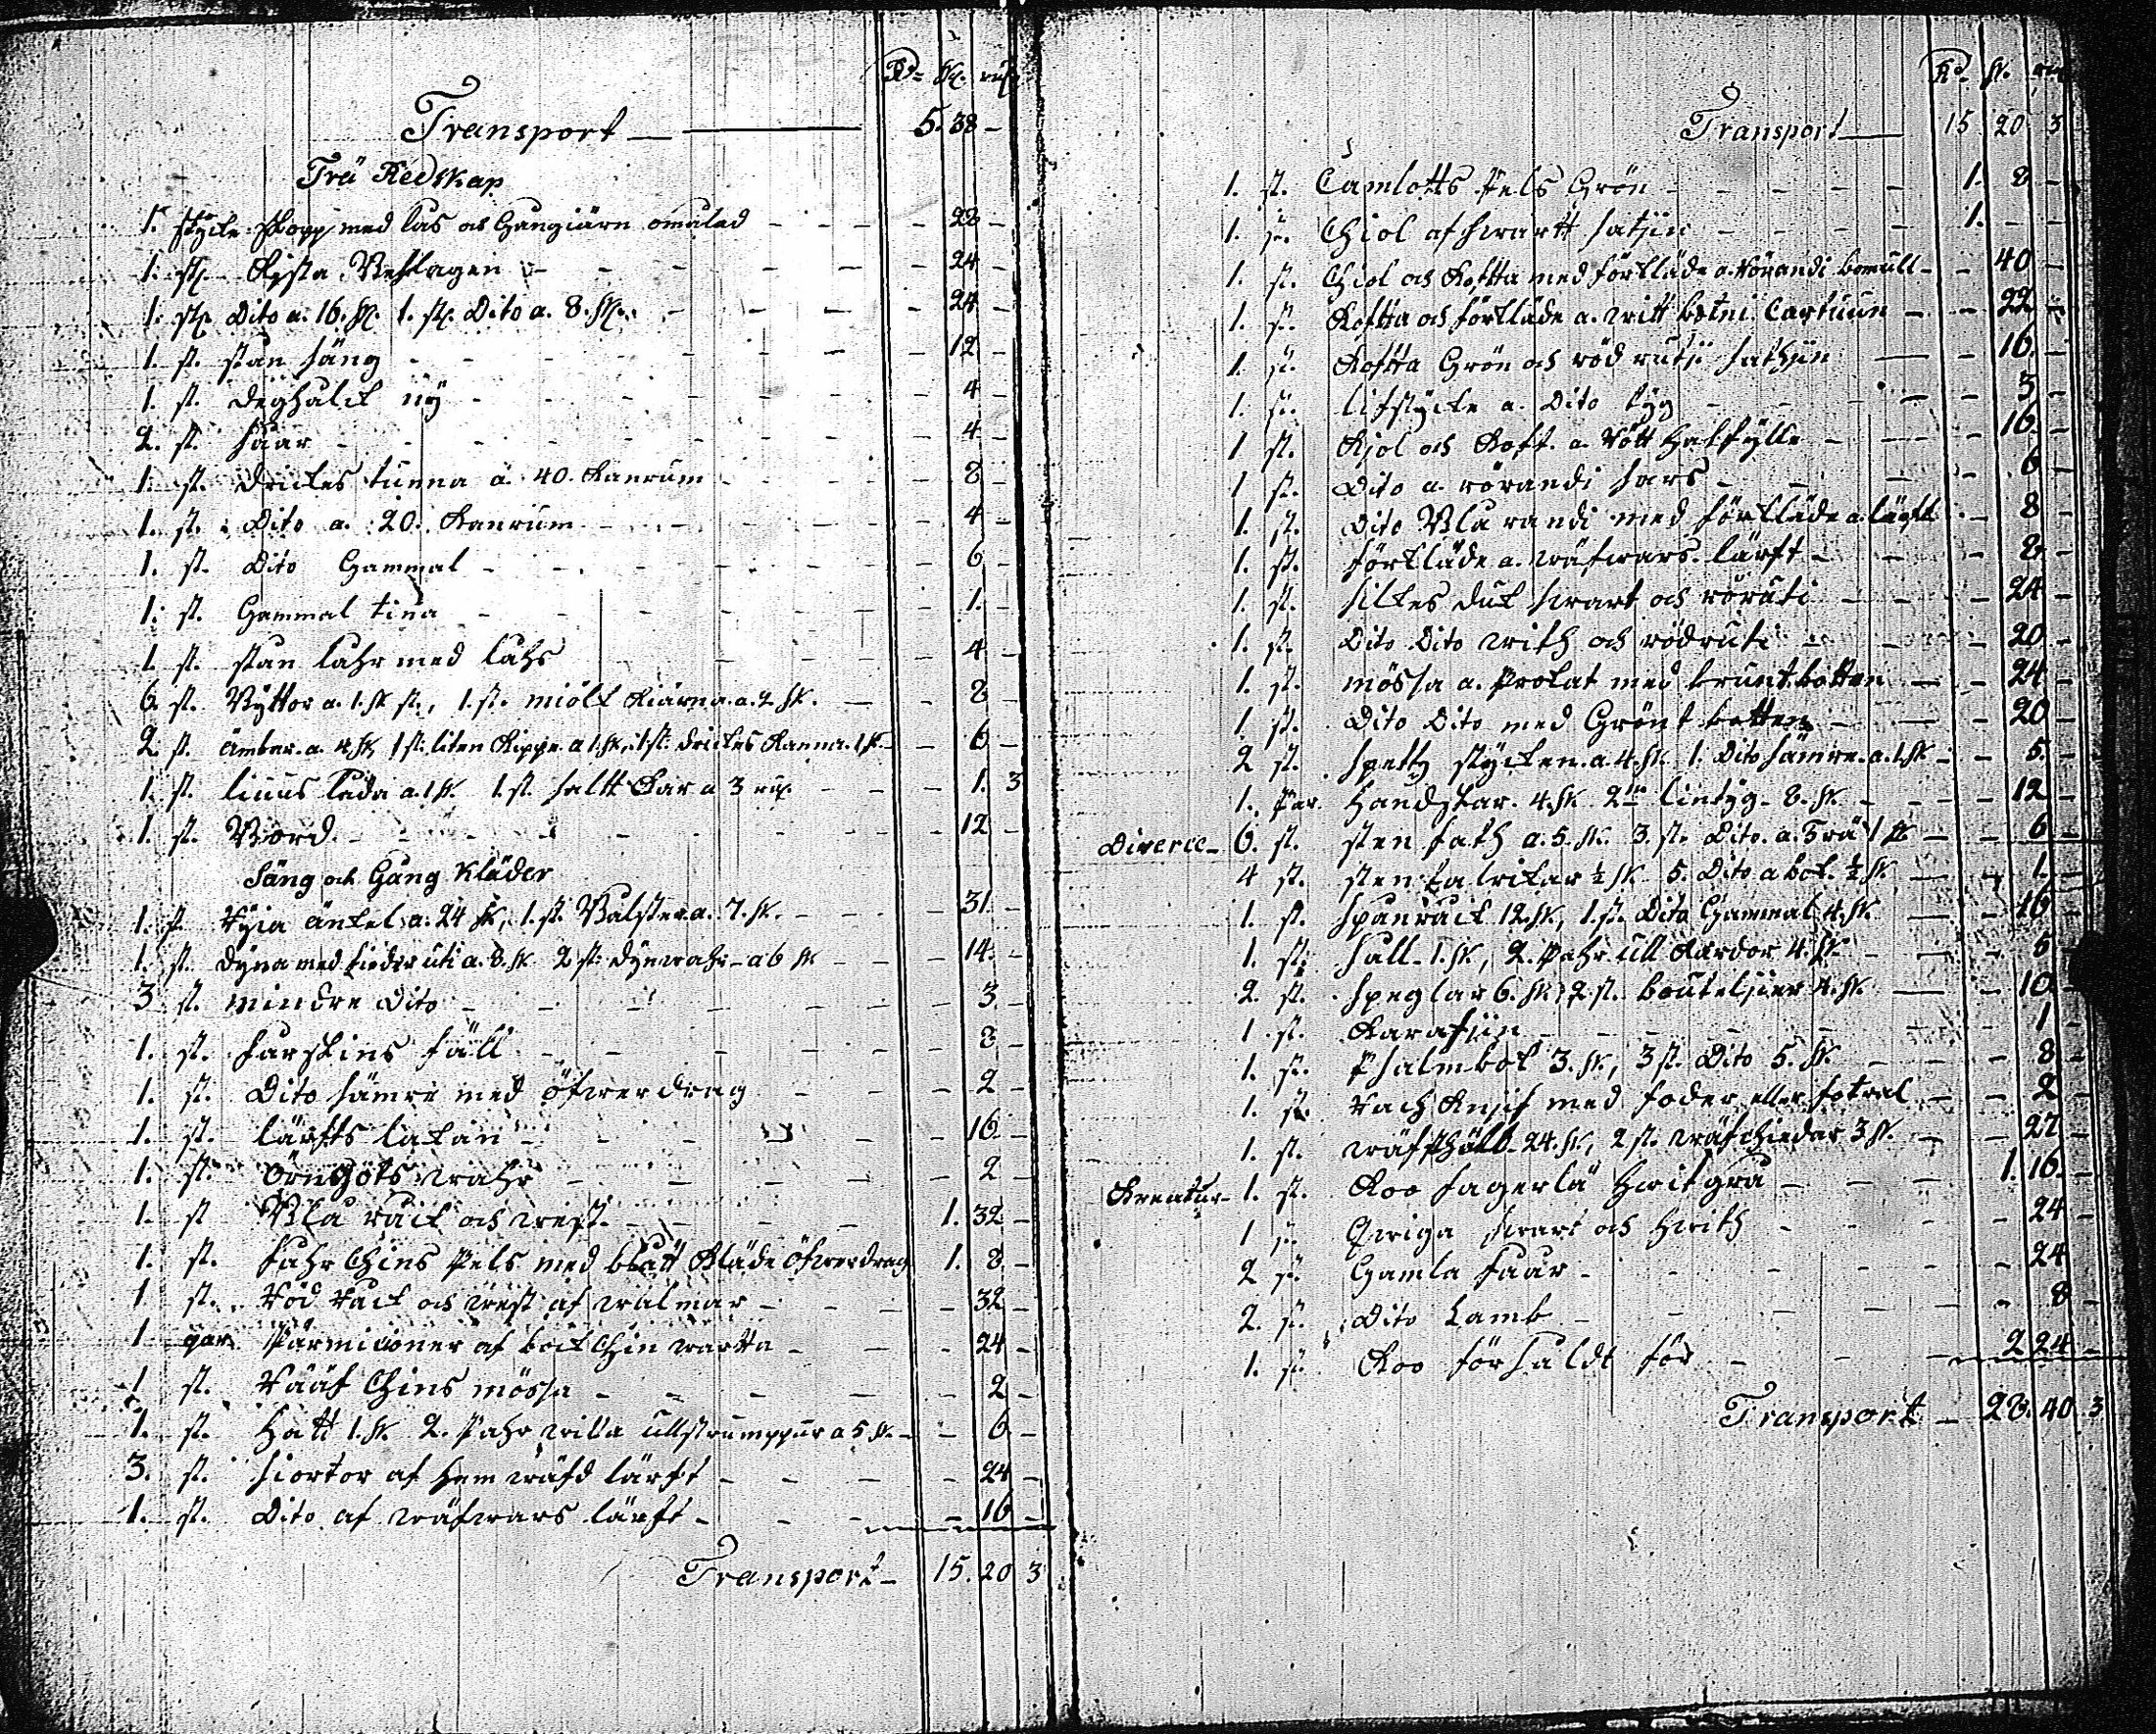 Rd. sk. rusp.
Transport — 5. 38 -
Trä Redskap
1. stycke skopp med lås och Gångiärn omålad - 28 -
1. st. Kista Beslagen - 24 -
1. st. Dito a. 16. sk. 1. st. Dito a. 8. sk. - 24 -
1. st. stan säng - 12 -
1. st. deghålck ny - 4 -
2. st. såar - 4 -
1. st. drickes tunna a. 40. Kanrum - 8 -
1. st. Dito a. 20. Kanrum - 4 -
1. st. Dito Gammal - 6 -
1. st. Gammal tina - 1. -
1. st. stan lahr med låhs - 4 -
6. st. Byttor a. 1. sk st., 1. st. miölk Kiärna a. 2 sk. - 8 -
2. st. ämbar a. 4 sk, 1 st. liten Kippe a 1. sk, 1. st. drickes Kanna 1 sk. - 6 -
1. st. liuus låda a. 1 sk. 1. st. saltt Kar a 3 rusp. - 1. 3
1. st. Bord - 12 -
Säng och Gång Kläder
1. st. änkel a. 24 sk, 1. st. Balster a. 7. sk. - 31 -
1. st. dyna med fieder uti a. 8. sk. 2 st. dynwahr a 6 sk - 14. -
3 st. mindre Dito - 3 -
1. st. fårskins fäll - 8 -
1. st. Dito sämre med öfwerdrag - 2 -
1. st. lärfts lakan - 16 -
1. st. Örngots wahr - 2 -
1. st Blå råck och wäst - 1. 32 -
1. st. fahr Chins Pels med blått Kläde öfwerdrag 1. 8 -
1 st. Röd Råck och wäst af walmar - 32 -
1 par Pärmisoner af bock Chin - 24 -
1 st. Rääf Chins mössa - 2 -
1. st. Hatt 1. sk 2. Pahr willa ullstrumppur a 5 sk. - 6 -
3. st. siortor af hem wäfd lärft - 24 -
1. st. Dito af wäfwars lärft - 16 -
Transport - 15. 20 3
Rd. sk. rusp
Transport — 15 20 3
1. st. Camlotts Pels Grön - 1. 8 -
1. st. Chiol af swartt satsin - 1. -
1. st. Chiol och Kofta med förkläde a. rörandi bomull - 40 -
1. st. Kofta och förkläde a. witt botni Cartuun - 22 -
1. st. Kofta Grön och röd rutji sathsin - 16 -
1. st. lifstycke a. Dito tyg - 3 -
1 st. Kjol och Koft. a. Rött Halfylle - 16 -
1 st. Dito a. rörandi sars - 6 -
1. st. Dito Blå randi med förkläde a. lärft - 8 -
1. st. förkläde a. wäfwars lärft - 8 -
1. st. silkes duk swart och röruti - 24 -
1. st. Dito Dito with och rödruti - 20 -
1. st. mössa a. Brokat med brunt botten - 24 -
1. st. Dito Dito med Grönt botten - 20 -
2 st. spetts stycken a. 4. sk. 1. Dito sämre a. 1. sk - 5. -
1. Par Handskar 4. sk. 2ne lintyg 8. sk. - 12 -
Diverce - 6. st. sten fath a. 5. sk. 3. st. Dito. a. Trä 1 sk - 6 -
4 st. sten talrikar ½ sk. 5. Dito a bok. ½ sk - 1. -
1. st. Spunråck 12. sk, 1. st. Dito Gammal 4. sk. - 16 -
1. st. såll 1. sk, 2. Pahr ull Kardor 4. sk. - 5
2. st. Speglar 6. sk, 2 st. bouteljier 4. sk. - 10
1. st. Karafsin - 1 -
1. st. Psalmbok 3. sk, 3 st. Dito 5. sk. - 8 -
1. st. Rach Knjif med foder eller fotral - 2 -
1. st. wäfsthåll 24. sk, 2 st. wäfchiedar 3 sk. - 27 -
Kreatur - 1. st. Koo fagerlä Hwitgrå - 1. 16. -
1 st. Qwiga swart och Hwith - 24 -
2 st. Gamla Fåår - 24 -
2. st. Dito Lamb - 8 -
1. st. Koo försåldt för - 2 24 -
Transport - 23. 40. 3